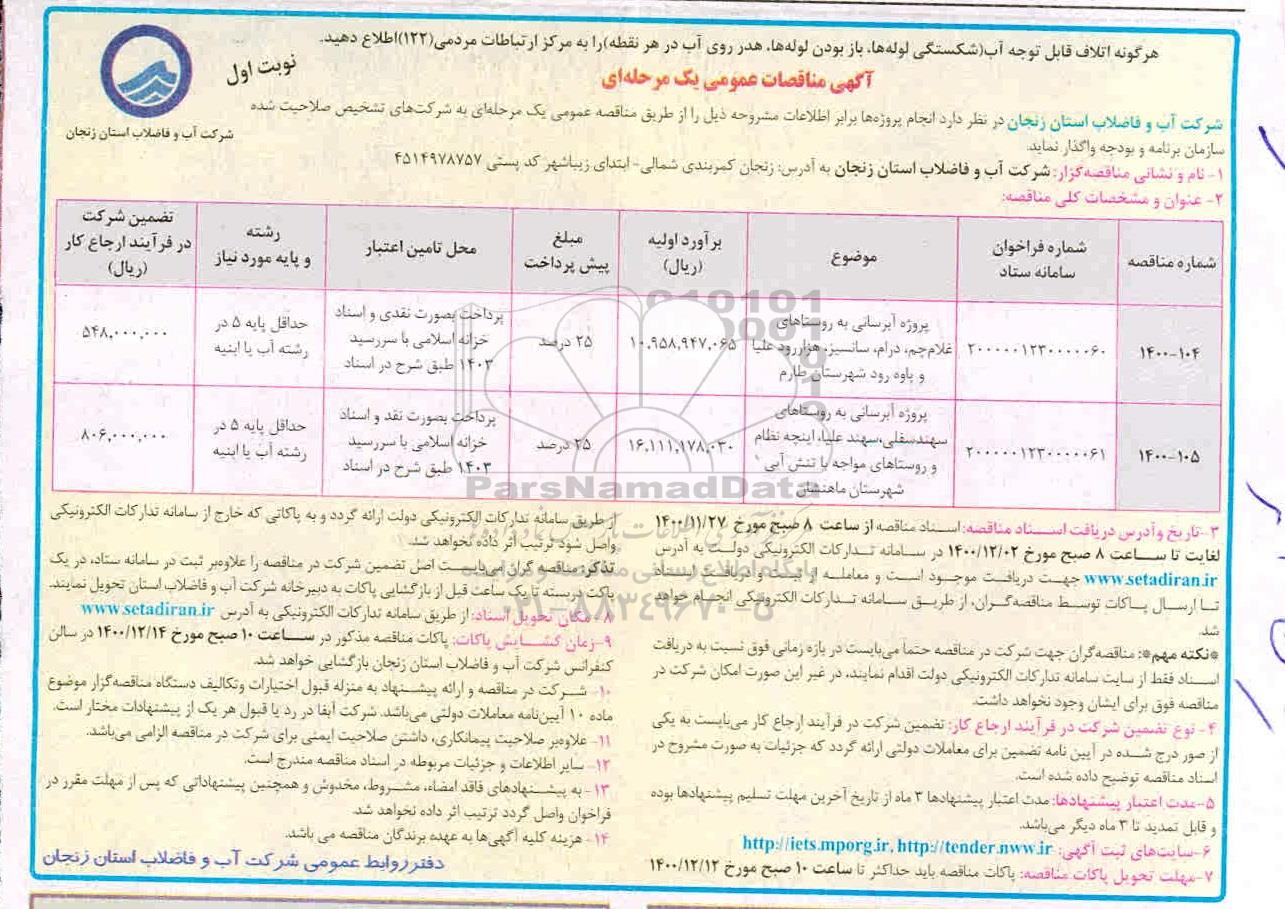 هرگونه اتلاف قابل توجه آب(شکستگی لوله‌ها، باز بودن لوله‌ها، هدر روی آب در هر نقطه)را به مرکز ارتباطات مردمی(۱۲۲)اطلاع دهید.
آگهی مناقصات عمومی یک مرحله‌ای
نوبت اول
شرکت آب و فاضلاب استان زنجان
شرکت آب و فاضلاب استان زنجان در نظر دارد انجام پروژه‌ها برابر اطلاعات مشروحه ذیل را از طریق مناقصه عمومی یک مرحله‌ای به شرکت‌های تشخیص صلاحیت شده
سازمان برنامه و بودجه واگذار نماید.
۱- نام و نشانی مناقصه‌گزار: شرکت آب و فاضلاب استان زنجان به آدرس: زنجان کمربندی شمالی- ابتدای زیباشهر کد پستی ۴۵۱۴۹۷۸۷۵۷
۲- عنوان و مشخصات کلی مناقصه:
شماره مناقصه
شماره فراخوان
سامانه ستاد
موضوع
برآورد اولیه
(ریال)
مبلغ
پیش پرداخت
محل تامین اعتبار
رشته
و پایه مورد نیاز
تضمین شرکت
در فرآیند ارجاع کار
(ریال)
۱۴۰۰-۱۰۴
۲۰۰۰۰۰۱۲۳۰۰۰۰۰۶۰
پروژه آبرسانی به روستاهای
غلام‌چم، درام، سانسیز، هزاررود علیا
و پاوه رود شهرستان طارم
۱۰,۹۵۸,۹۴۷,۰۶۵
۲۵ درصد
پرداخت بصورت نقدی و اسناد
خزانه اسلامی با سررسید
۱۴۰۳ طبق شرح در اسناد
حداقل پایه ۵ در
رشته آب یا ابنیه
۵۴۸,۰۰۰,۰۰۰
۱۴۰۰-۱۰۵
۲۰۰۰۰۰۱۲۳۰۰۰۰۰۶۱
پروژه آبرسانی به روستاهای
سهندسفلی،سهند علیا، اینچه نظام
و روستاهای مواجه با تنش آبی
شهرستان ماهنشان
۱۶,۱۱۱,۱۷۸,۰۳۰
۲۵ درصد
پرداخت بصورت نقد و اسناد
خزانه اسلامی با سررسید
۱۴۰۳ طبق شرح در اسناد
حداقل پایه ۵ در
رشته آب یا ابنیه
۸۰۶,۰۰۰,۰۰۰
ParsNamadData
۰۲۱-۸۸۳۴۹۶۷۰-۵
۳-تاریخ و آدرس دریافت اسـناد مناقصه: اسـناد مناقصه از ساعت ۸ صبح مورخ ۱۴۰۰/۱۱/۲۷
لغایت تا ساعت ۸ صبح مورخ ۱۴۰۰/۱۲/۰۲ در سامانه تدارکات الکترونیکی دولت به آدرس
www.setadiran.ir جهت دریافت موجود است و معامله از ثبت و دریافت اسناد
تا ارسال پاکات توسط مناقصه‌گران، از طریق سامانه تدارکات الکترونیکی انجام خواهد
شد.
*نکته مهم*: مناقصه‌گران جهت شرکت در مناقصه حتماً می‌بایست در بازه زمانی فوق نسبت به دریافت
اسناد فقط از سایت سامانه تدارکات الکترونیکی دولت اقدام نمایند، در غیر این صورت امکان شرکت در
مناقصه فوق برای ایشان وجود نخواهد داشت.
۴- نوع تضمین شرکت در فرآیند ارجاع کار: تضمین شرکت در فرآیند ارجاع کار می‌بایست به یکی
از صور درج شده در آیین نامه تضمین برای معاملات دولتی ارائه گردد که جزئیات به صورت مشروح در
اسناد مناقصه توضیح داده شده است.
۵-مدت اعتبار پیشنهادها: مدت اعتبار پیشنهادها ۳ ماه از تاریخ آخرین مهلت تسلیم پیشنهادها بوده
و قابل تمدید تا ۳ ماه دیگر می‌باشد.
۶-سایت‌های ثبت آگهی: http://iets.mporg.ir, http://tender.nww.ir
۷-مهلت تحویل پاکات مناقصه: پاکات مناقصه باید حداکثر تا ساعت ۱۰ صبح مورخ ۱۴۰۰/۱۲/۱۲
از طریق سامانه تدارکات الکترونیکی دولت ارائه گردد و به پاکاتی که خارج از سامانه تدارکات الکترونیکی
واصل شود ترتیب اثر داده نخواهد شد.
تذکر: مناقصه گران می‌بایست اصل تضمین شرکت در مناقصه را علاوه‌بر ثبت در سامانه ستاد، در یک
پاکت دربسته تا یک ساعت قبل از بازگشایی پاکات به دبیرخانه شرکت آب و فاضلاب استان تحویل نمایند.
۸- مکان تحویل اسناد: از طریق سامانه تدارکات الکترونیکی به آدرس www.setadiran.ir
۹-زمان گشایش پاکات: پاکات مناقصه مذکور در ساعت ۱۰ صبح مورخ ۱۴۰۰/۱۲/۱۴ در سالن
کنفرانس شرکت آب و فاضلاب استان زنجان بازگشایی خواهد شد.
۱۰- شرکت در مناقصه و ارائه پیشنهاد به منزله قبول اختیارات وتکالیف دستگاه مناقصه‌گزار موضوع
ماده ۱۰ آیین‌نامه معاملات دولتی می‌باشد. شرکت آبفا در رد یا قبول هر یک از پیشنهادات مختار است.
۱۱- علاوه‌بر صلاحیت پیمانکاری، داشتن صلاحیت ایمنی برای شرکت در مناقصه الزامی می‌باشد.
۱۲- سایر اطلاعات و جزئیات مربوطه در اسناد مناقصه مندرج است.
۱۳- به پیشنهادهای فاقد امضاء، مشروط، مخدوش و همچنین پیشنهاداتی که پس از مهلت مقرر در
فراخوان واصل گردد ترتیب اثر داده نخواهد شد.
۱۴- هزینه کلیه آگهی‌ها به عهده برندگان مناقصه می باشد.
دفتر روابط عمومی شرکت آب و فاضلاب استان زنجان